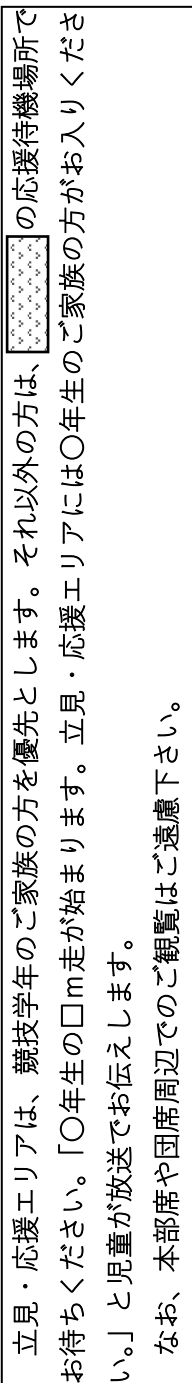 立見・応援エリアは、競技学年のご家族の方を優先とします。それ以外の方は、の応援待機場所で
お待ちください。「〇年生の□m走が始まります。立見・応援エリアには〇年生のご家族の方がお入りくださ
い。」と児童が放送でお伝えします。
なお、本部席や団席周辺でのご観覧はご遠慮下さい。